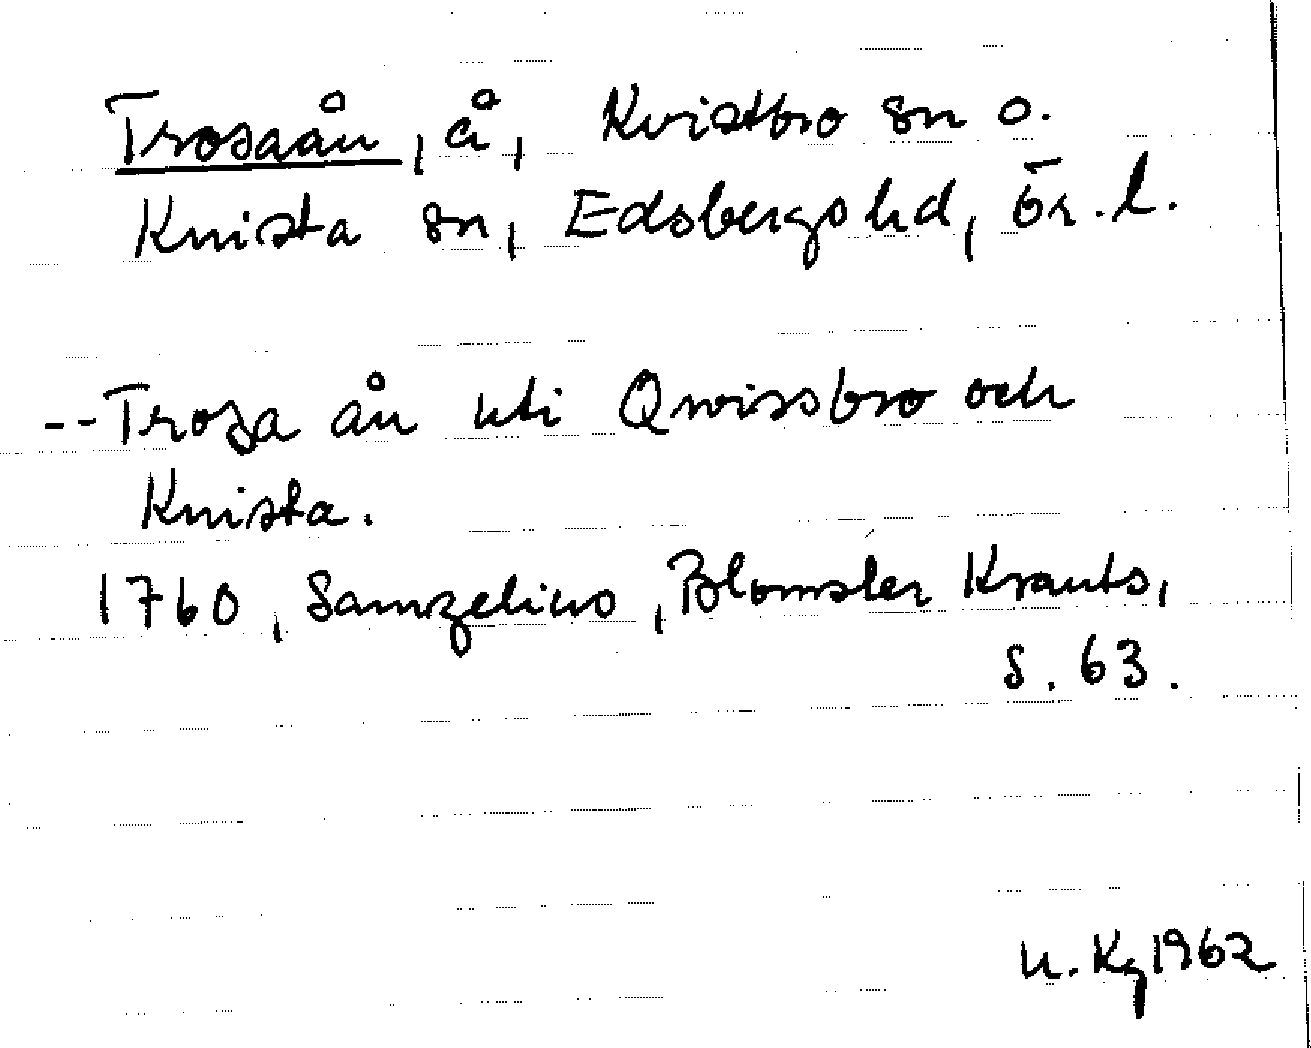 Trosaån, å, Kvistbro sn o.
Knista sn, Edsbergs hd, Ör. l.
-- Troza ån uti Qwissbro och
Knista.
1760, Samzelius, Blomster Krants,
s. 63.
u. Kg 1962